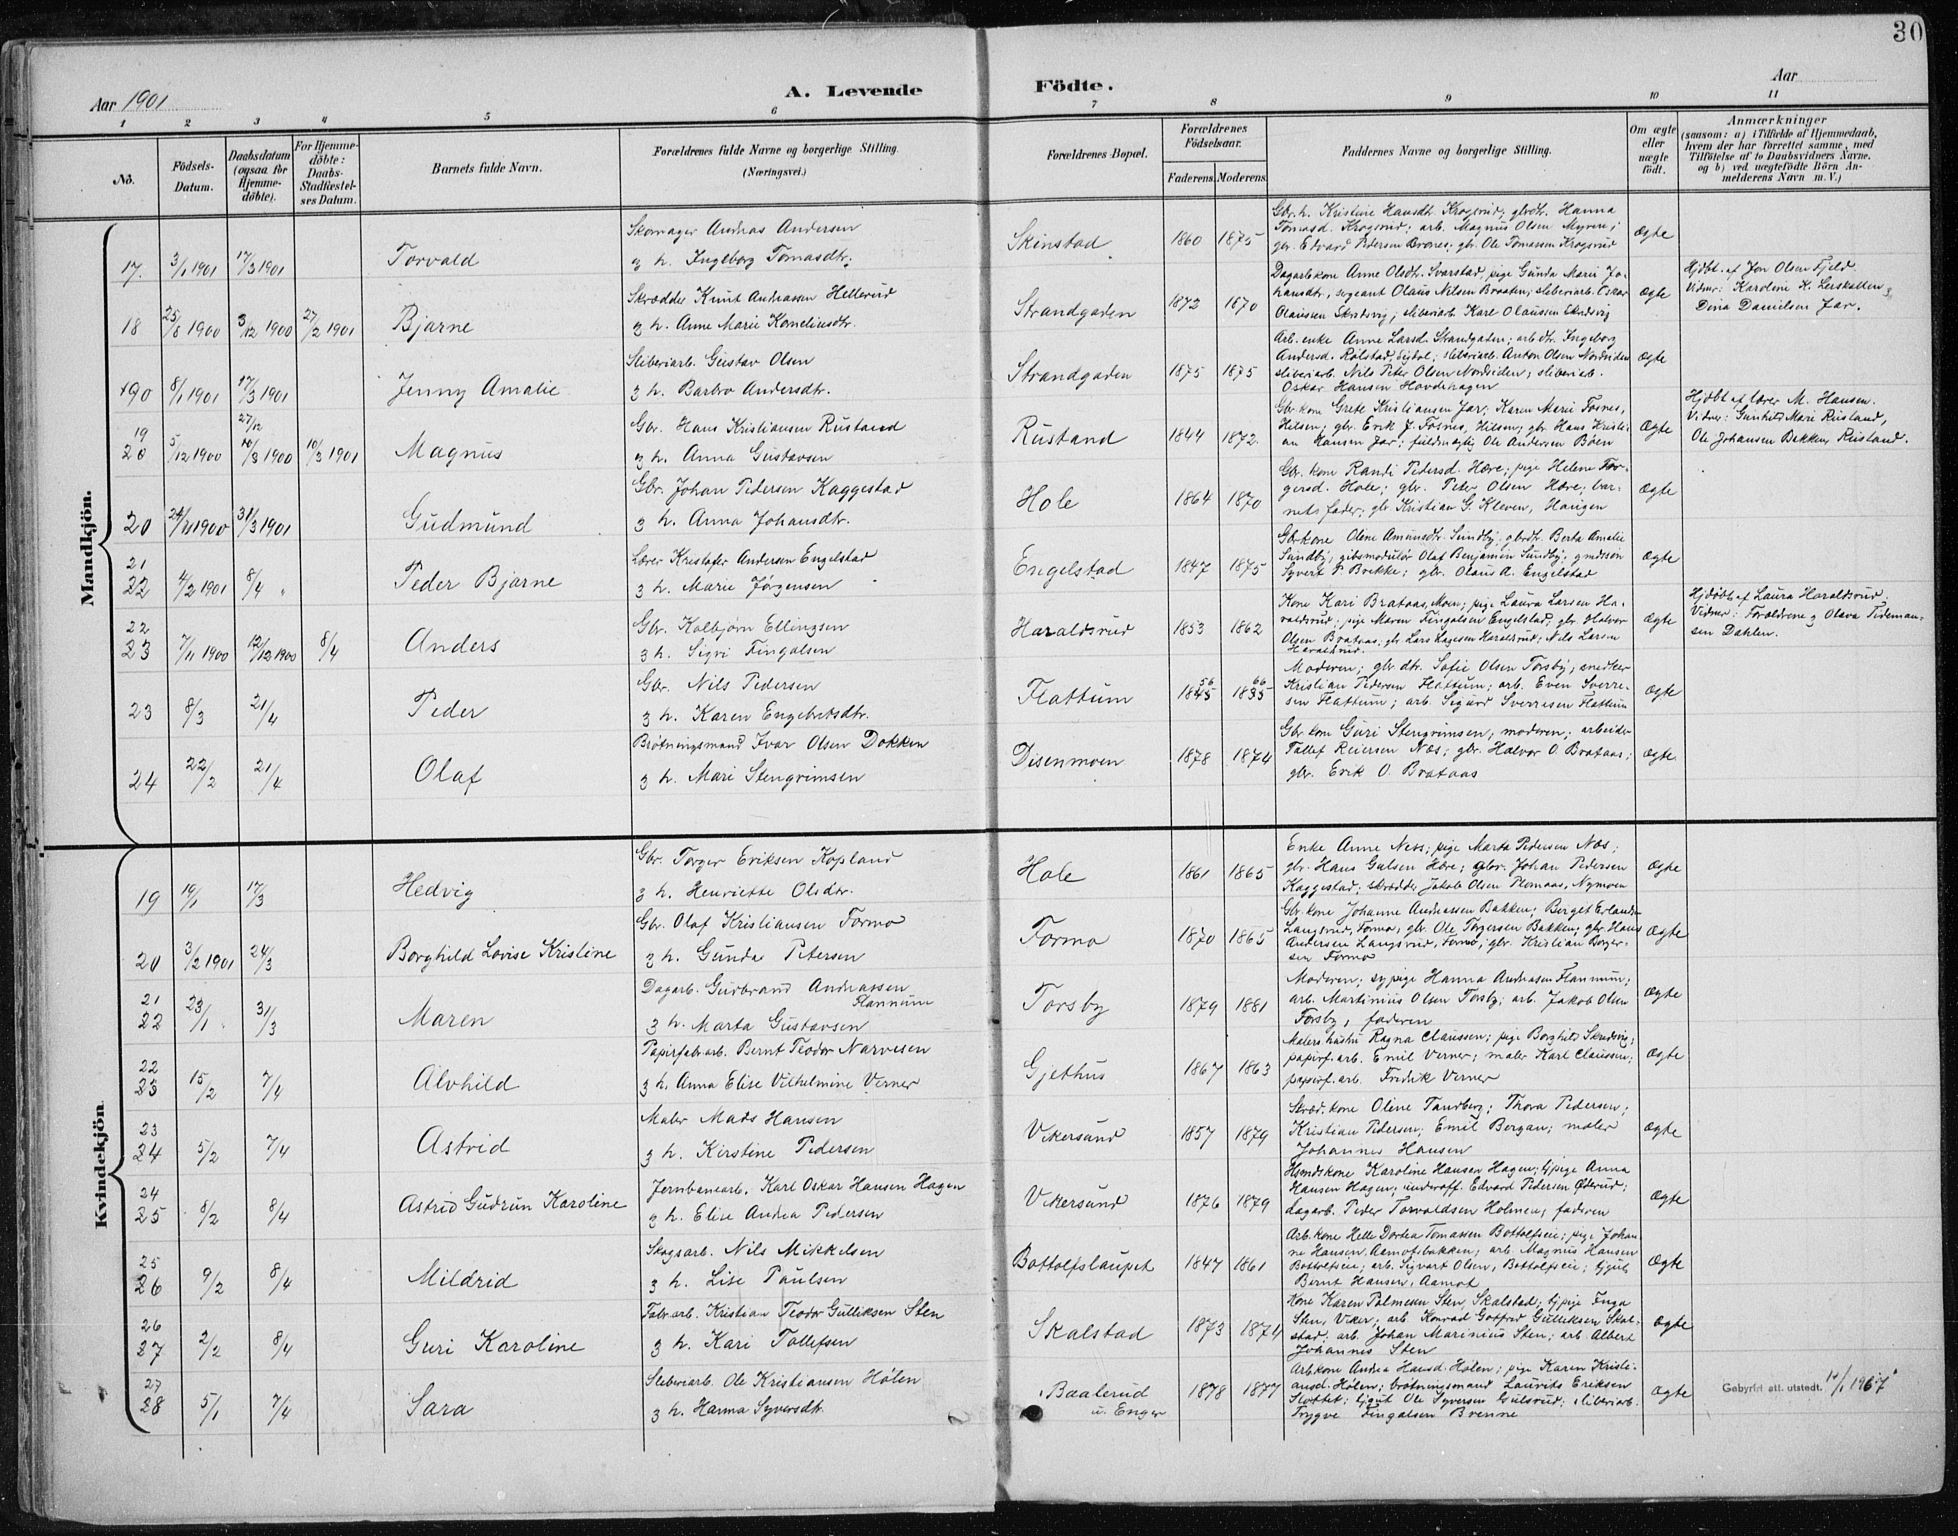 30
Aar 1901
A. Levende
Födte.
Aar
1 2 3 4 5 6 7 8 9 10 11
No.
Födsels-Datum.
Daabsdatum (ogsaa for Hjemme-döbte).
For Hjemme-döbte: Daabs-Stadfæstel-ses Datum.
Barnets fulde Navn.
Forældrenes fulde Navne og borgerlige Stilling. (Næringsvei.)
Forældrenes Bopæl.
Forældrenes Födselsaar.
Faderens. Moderens.
Faddernes Navne og borgerlige Stilling.
Om ægte eller uægte födt.
Anmærkninger
(saasom: a) i Tilfælde af Hjemmedaab,
hvem der har forrettet samme, med
Tilföielse af to Daabsvidners Navne.
og b) ved uægtefödte Börn An-
melderens Navn m. V.)
Mandkjön.
17. 3/1 1901 17/3 1901 Torvald
Skomager Andreas Andersen
3 h. Ingeborg Tomasdtr.
Skinstad 1860 1875
Gbr. h. Kristine Hansdtr Krogsrud; gbrdtr. Hanna
Tomasd. Krogsrud; arb. Magnus Olsen Myren;
gbr. Edvard Pedersen Brones; gbr. Ole Tomassen Krogsrud
Ægte
18 25/8 1900 3/12 1900 27/2 1901 Bjarne
Skrædder Knut Andreassen Hellerud
3 h. Anne Marie Korneliusdtr.
Strandgaden 1872 1870
Dagarb.kone Anne Olsdtr. Svarstad, pige Gunda Marie Jo-
hansdtr, sergeant Olaus Nilsen Braaten; sliberiarb. Oskar
Olaussen Skredsvig; sliberiarb Karl Olaussen Skredsvig
Ægte
Hjdbt. af Jon Olsen Fjeld.
Vidner: Karoline K. Lerskallen
Dina Danielsen Jar.
190 8/1 1901 17/3 1901 Jenny Amalie
Sliberiarb. Gustav Olsen
3 h. Barbro Andersdtr.
Strandgaden 1875 1875
Arb. enke Anne Larsd. Strandgaden; arb dtr. Ingeborg
Andersd. Rolstad, Sigdal; sliberiarb. Anton Olsen Nordsiden
sliberiarb. Nils Peter Olsen Nordsiden; sliberiarb.
Oskar Hansen Hovdehagen
Ægte
19
20 5/12 1900 27/12 10/3 1900 10/3 1901 Magnus
Gbr. Hans Kristiansen Rustand
3 h. Anna Gustavsen
Rustand 1844 1872.
Gbr kone Grete Kristiansen Jar; Karen Marie Fosnes,
Hilsen; gbr. Erik J. Fosnes, Hilsen; gbr Hans Kristi-
an Hansen Jar; fuldmægtig Ole Andersen Böen
Ægte
Hjdbt af lærer M. Hansen.
Vidner: Gunhild Marie Rustand,
Ole Johansen Bakken, Rustand.
20 24/11 1900 31/3 1901 Gudmund
Gbr. Johan Pedersen Kaggestad
3 h. Anna Johansdtr.
Hole 1864 1870
Gbr. kone Randi Pedersd. Hære; pige Helene Tor-
gersd. Hole; gbr. Peter Olsen Hære; bar-
nets fader; gbr Kristian G. Kleven, Haugen
Ægte
21
22 4/2 1901 8/4 " Peder Bjarne
Lærer Kristofer Andersen Engelstad
3 h. Marie Jørgensen
Engelstad 1847 1875
Gbr kone Olene Amunsdtr. Sundby, gbrdtr Berta Amalie
Sundby; gibsmodulør Olaf Benjamin Sundby; gmdssøn
Syvert P. Brekke; gbr. Olaus A. Engelstad
Ægte
22
23 7/11 1900 12/12 1900 8/4 Anders
Gbr. Kolbjörn Ellingsen
3 h. Sigri Fingalsen
Haraldsrud 1853 1862
Kone Kari Brataas, Moen; pige Laura Larsen Ha-
raldsrud; pige Maren Fingalsen Engelstad, gbr. Halvor
Olsen Brataas, gbr Lars Lagesen Haraldsrud, Nils Larsen
Haraldsrud.
Ægte
Hjdøbt af Laura Haraldsrud.
Vidner: Forældrene, Olava Tideman-
sen Dahlen.
23 8/3 21/4 Peder
Gbr. Nils Pedersen
3 h. Karen Engebretsdtr.
Flattum 1845 56 1835 66
Moderen; gbr dtr. Sofie Olsen Torsby; snedker
Kristian Pedersen Flattum; arb. Even Sverre-
sen Flattum; arb. Sigurd Sverresen Flattum
Ægte
24 22/2 21/4 Olaf
Brøtningsmand Ivar Olsen Dokken
3 h. Mari Stengrimsen
Disenmoen 1878 1874
Gbr kone Guri Stengrimsen; moderen; arbeider
Tollef Reiersen Næs; gbr. Halvor O. Brataas;
gbr. Erik O. Brataas
Ægte.
Kvindekjön.
19 19/1 17/3 Hedvig
Gbr. Torger Eriksen Kopland
3 h. Henriette Olsdtr.
Hole 1861 1865
Enke Anne Ness; pige Marta Pedersen Næs;
gbr. Hans Gulsen Hære; gbr. Johan Pedersen
Kaggestad; skrædder Jakob Olsen Plomaas, Nymoen
Ægte
20 3/2 1901 24/3 Borghild Lovise Kristine
Gbr. Olaf Kristiansen Formo
3 h. Gunda Petersen
Formo 1870 1865
Gbr. kone Johanne Andreassen Bakken; Berget Erlands.
Langsrud, Formo, gbr. Ole Torgersen Bakken; gbr. Hans
Andersen Langsrud, Formo; gbr. Kristian Borger-
sen Formo
Ægte
21
22 23/1 31/3 Maren
Dagarb. Gudbrand Andreassen
Flannum
3 h. Marta Gustavsen
Torsby 1879 1881
Moderen; sypige Hanna Andreasen Flannum;
arb. Martinius Olsen Torsby; arb. Jakob Olsen
Torsby; faderen
Ægte
22
23 15/2 7/4 Alvhild
Papirfabr.arb. Bernt Teodor Narvesen
3 h. Anna Elise Vilhelmine Verner
Gjethus 1867 1863
Malers hustru Ragna Claussen; pige Borghild Skredsvig;
papirf. arb. Emil Verner; maler Karl Claussen;
papirf. arb. Fredrik Verner
Ægte
23
24 5/2 7/4 Astrid
Maler Mads Hansen
3 h. Kirstine Pedersen
Vikersund 1857 1879
Skræd. kone Oline Tandberg; Thora Pedersen;
Kristian Pedersen; Emil Bergan; maler
Johannes Hansen
Ægte
24
25 8/2 8/4 Astrid Gudrun Karoline
Jernbanearb. Karl Oskar Hansen Hagen
3 h. Elise Andrea Pedersen
Vikersund 1876 1879
Hsmdskone Karoline Hansen Hagen; tj.pige Anna
Hansen Hagen; underoff. Edvard Pedersen Øderud;
dagarb. Peder Torvaldsen Holmen, faderen
Ægte
25
26 9/2 8/4 Mildrid
Skogsarb. Nils Mikkelsen
3 h. Lise Paulsen
Bottolfslaupet 1847 1861
Arb. kone Helle Dortea Tomassen Bottolfseie; pige Johan-
ne Hansen Aamotbakken; arb. Magnus Hansen
Bottolfseie; arb. Sigvart Olsen, Bottolfseie; tjgut
Bernt Hansen, Aamot
Ægte
26
27 2/2 8/4 Guri Karoline
Fabr.arb. Kristian Teodor Gulliksen Sten
3 h. Kari Tollefsen
Skalstad 1873 1874
Kone Karen Palmesen Sten, Skalstad; tj.pige Inga
Sten, Viker; arb Konrad Gotfred Gulliksen Skal-
stad; arb. Johan Marinius Sten; arb Albert
Johannes Sten
Ægte
27
28 5/1 7/4 Sara
Sliberiarb. Ole Kristiansen Hølen
3 h. Hanna Syversdtr.
Baalerud
u. Enger 1878 1877
Arb kone Andrea Hansd. Hølen; pige Karen Kristi-
ansd. Hølen; brøtningsmand Laurits Eriksen
Slottet; tjgut Ole Syversen Gulsrud; sliberiarb.
Trygve Fingalsen Brenne
Ægte
Gebyrfri att. utstedt. 14/1 1967